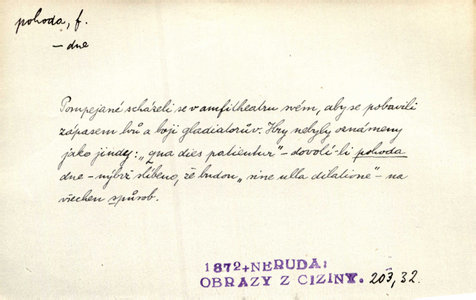 pohoda, f.
- dne
Pompejané scházeli se v amfitheatru svém, aby se pobavili
zápasem lvů a boji gladiatorův. Hry nebyly oznámeny
jako jindy: „qua dies patientur" - dovolí-li pohoda
dne - nýbrž slíbeno, že budou „sine ulla dilatione" - na
všechen způsob.
1872+NERUDA:
OBRAZY Z CIZINY. 203, 32.